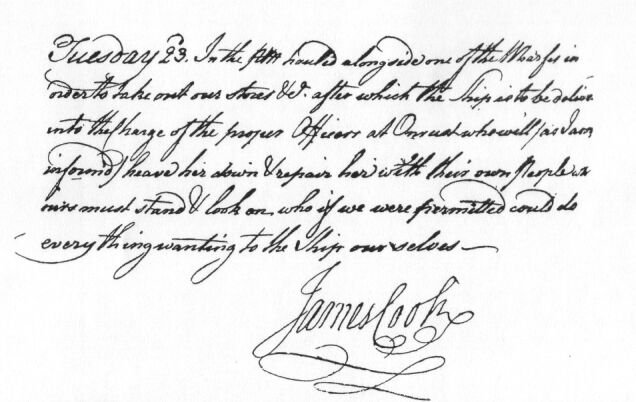 Tuesday 23. In the PM hauled alongside one of the Wharfes in
order to take out our stores &c. after which the Ship is to be deliv
into the Charge of the proper Officers at Onrust who will (as I am
inform'd) heave her down & repair her with their own People
ours must stand & look on who if we were permitted could do
every thing wanting to the Ship our selves—
James Cook